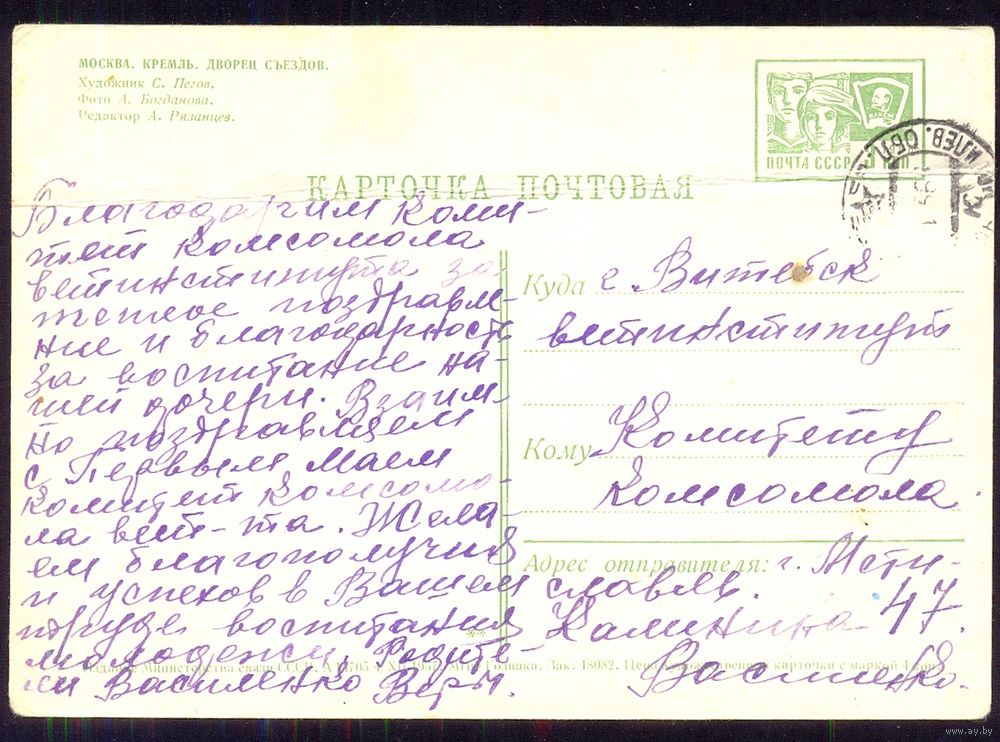 МОСКВА. КРЕМЛЬ. ДВОРЕЦ СЪЕЗДОВ.
Художник С. Пегов.
Фото А. Богданова.
Редактор А. Рязанцев.
ПОЧТА СССР
КАРТОЧКА ПОЧТОВАЯ
Благодарим коми-
тет комсомола
ветинститута за
теплое поздравле-
ние и благодарность
за воспитание на-
шей дочери. Взаим-
но поздравляем
с Первым Маем
комитет комсомо-
ла вет-та. Жела-
ем благополучия
и успехов в Вашем
труде воспитания
молодежи. Родите-
ли Василенко Веры.
Куда г. Витебск
ветинститут
Кому Комитету
комсомола.
Адрес отправителя: г. Мсти-
славль.
Калинина 47.
Василенко.
Издание Министерства связи СССР. Гознака. Зак. 48082. Цена художественной карточки с маркой 4 коп.
www.ay.by